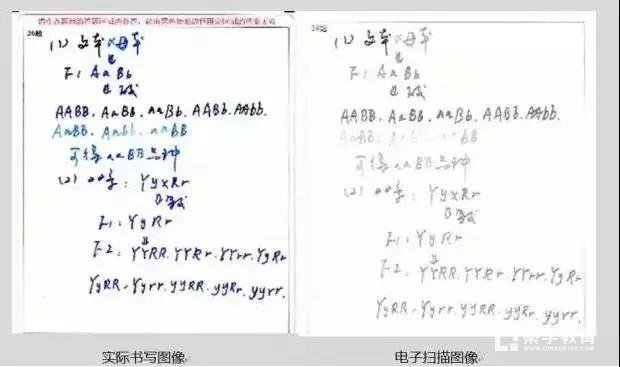 请在各题目的答题区域内作答，超出黑色矩形边框限定区域的答案无效
26题
(1) 父本×母本
↓
F1 AaBb
↓
AABB. AaBB. aaBb. AABb. AAbb.
AaBb. Aabb. aaBB
可得aaBB品种
(2) 
: YyxRr
F1: YyRr
↓
F2: YYRR. YYRr. YYrr. YyRr
YyRR. Yyrr. yyRR. yyRr. yyrr.
实际书写图像
26题
(1) 父本×母本
↓
F1 AaBb
↓
AABB. AaBB. aaBb. AABb. AAbb.
AaBb. Aabb. aaBB
可得aaBB品种
(2) 
: YyxRr
F1: YyRr
↓
F2: YYRR. YYRr. YYrr. YyRr
YyRR. Yyrr. yyRR. yyRr. yyrr.
电子扫描图像
WWW.QINXUE100.COM